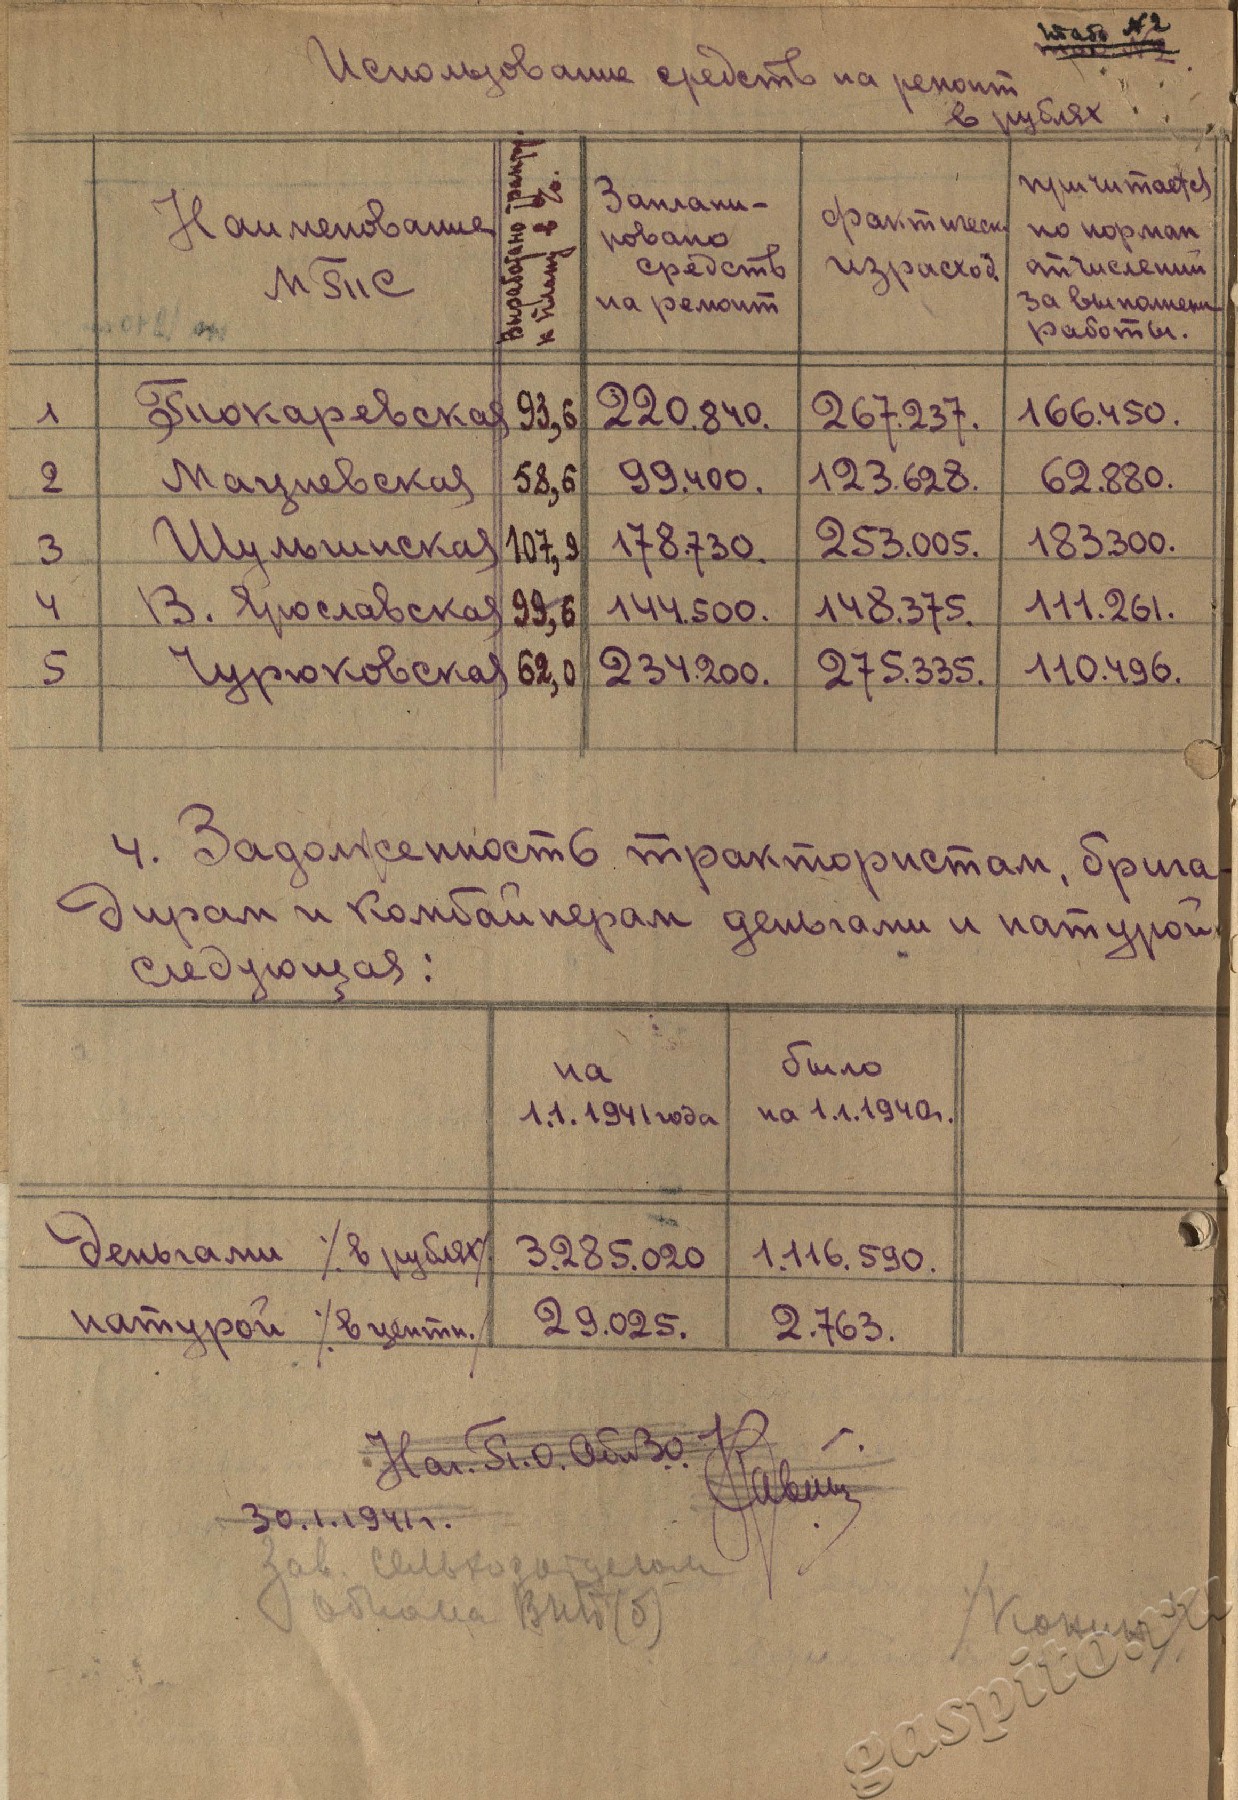 Табл №2
Использование средств на ремонт
в рублях
Наименование МТС | Выработано тракт. к плану в %. | Заплани-ровано средств на ремонт | фактическ израсход | причитается по нормам отчислений за выполнен работы.
1 Токаревская 93,6 220.840. 267.237. 166.450.
2 Мацневская 58,6 99.400. 123.628. 62.880.
3 Шульгинская 107,9 178.730. 253.005. 183300.
4 В. Ярославская 99,6 144.500. 148.375. 111.261.
5 Чурюковская 62,0 234.200. 275.335. 110.496.
4. Задолженность трактористам, брига-
дирам и комбайнерам деньгами и натурой
следующая:
на 1.1.1941 года | было на 1.1.1940г.
Деньгами /в рублях/ 3.285.020 1.116.590.
натурой /в центн./ 29.025. 2.763.
Нач. П.О. ОблЗО.
30.1.1941г.
Зав. сельхозотделом
Обкома ВКП(б)
gaspito.ru